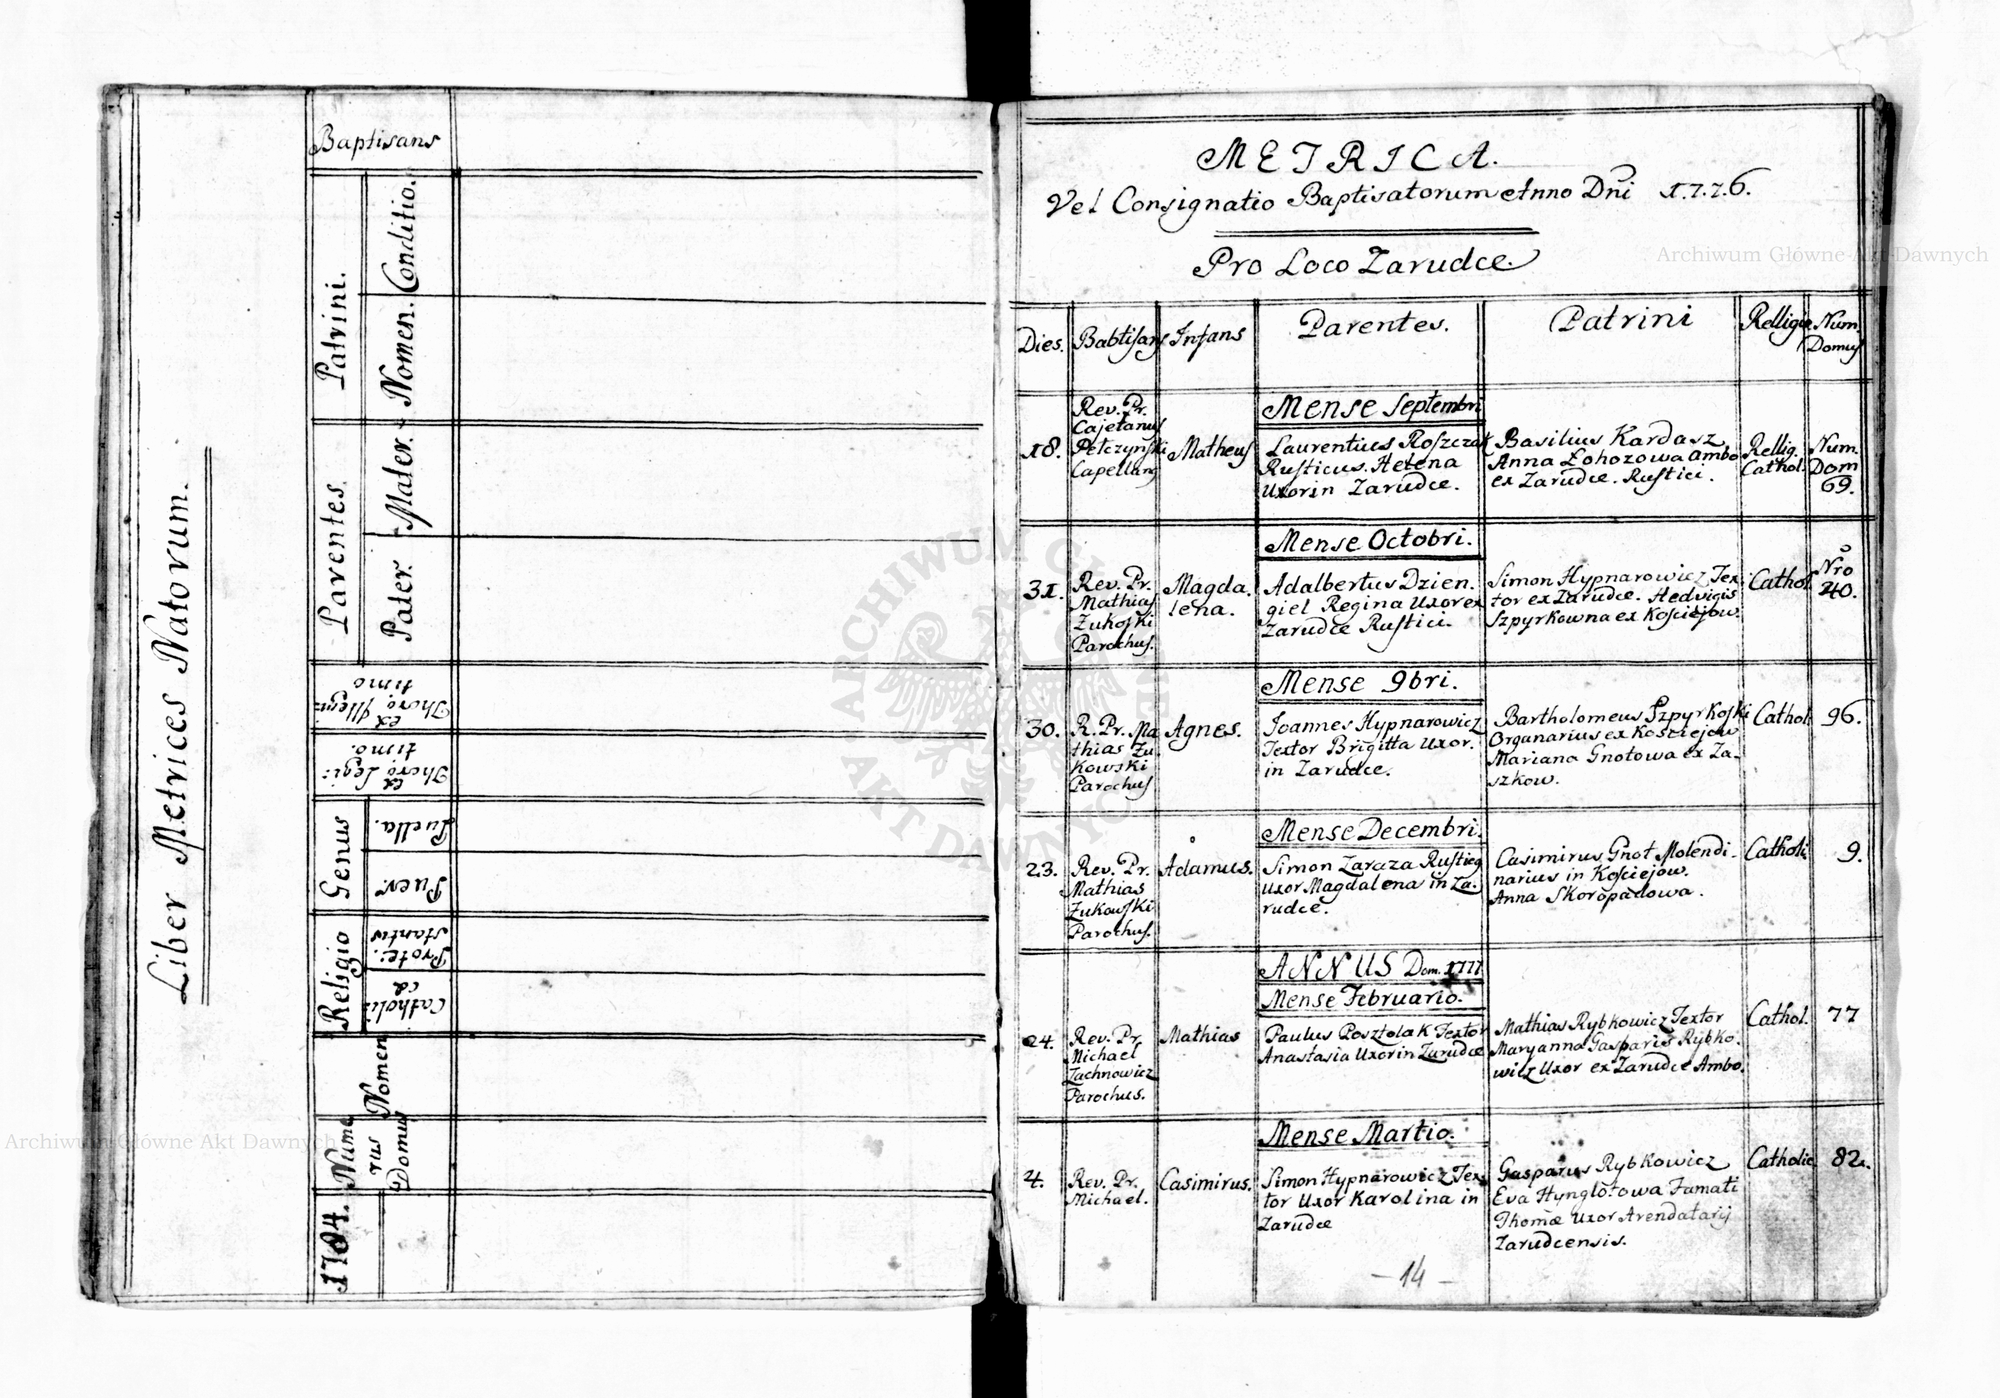 Liber Metrices Natorum.
Baptisans
Patrini.
Conditio.
Nomen.
Parentes.
Mater.
Pater.
ex
Thoro Illegi:
timo
ex
Thoro Legi:
timo.
Genus
Puella.
Puer.
Religio
Prote:
stantis
Catholi:
ca
Nomen
Nume
rus
Domus
1784.
METRICA.
Vel Consignatio Baptisatorum Anno Dni 1.7.7.6.
Pro Loco Zarudce.
Dies.
Babtisans
Infans
Parentes.
Patrini
Relligio
Num.
Domus
Mense Septembri
18.
Rev. Pr.
Cajetanus
Petczynski
Capellanus
Matheus
Laurentius Roszczak
Rusticus. Helena
Uxor in Zarudce.
Basilius Kardasz
Anna Łohozowa ambo
ex Zarudce. Rustici.
Rellig.
Cathol.
Num.
Dom
69.
Mense Octobri.
31.
Rev. Pr.
Mathias
Zukoski
Parochus.
Magda
lena.
Adalbertus Dzien.
giel Regina Uxor ex
Zarudce Rustici.
Simon Hypnarowicz Tex:
tor ex Zarudce. Hedvigis
Szpyrkowna ex Kosciejow.
Cathol.
Nro
40.
Mense 9bri.
30.
R. Pr. Ma
thias Zu
kowski
Parochus
Agnes.
Joannes Hypnarowicz
Textor Brigitta Uxor.
in Zarudce.
Bartholomeus Szpyrkoski
Organarius ex Kosciejow
Mariana Gnotowa ex Za-
szkow.
Cathol.
96.
Mense Decembri.
23.
Rev. Pr.
Mathias
Zukowski
Parochus.
Adamus.
Simon Zaraza Rusticus
Uxor Magdalena in Za.
rudce.
Casimirus Gnot Molendi-
narius in Kosciejow.
Anna Skoropadowa.
Catholi
9.
ANNUS Dom. 1777
Mense Februario.
24.
Rev. Pr.
Michael
Zachnowicz
Parochus.
Mathias
Paulus Posztolak Textor
Anastasia Uxor in Zarudce
Mathias Rybkowicz Textor
Maryanna Gasparis Rybko.
wicz Uxor ex Zarudce Ambo.
Cathol.
77
Mense Martio.
4.
Rev. Pr.
Michael.
Casimirus.
Simon Hypnarowicz Tex
tor Uxor Karolina in
Zarudce
Gasparus Rybkowicz
Eva Hynglotowa Famati
Thomæ Uxor Arendatarij
Zarudcensis.
Catholic
82.
- 14 -
Archiwum Główne Akt Dawnych
Archiwum Główne Akt Dawnych
ARCHIWUM GŁÓWNE
AKT DAWNYCH